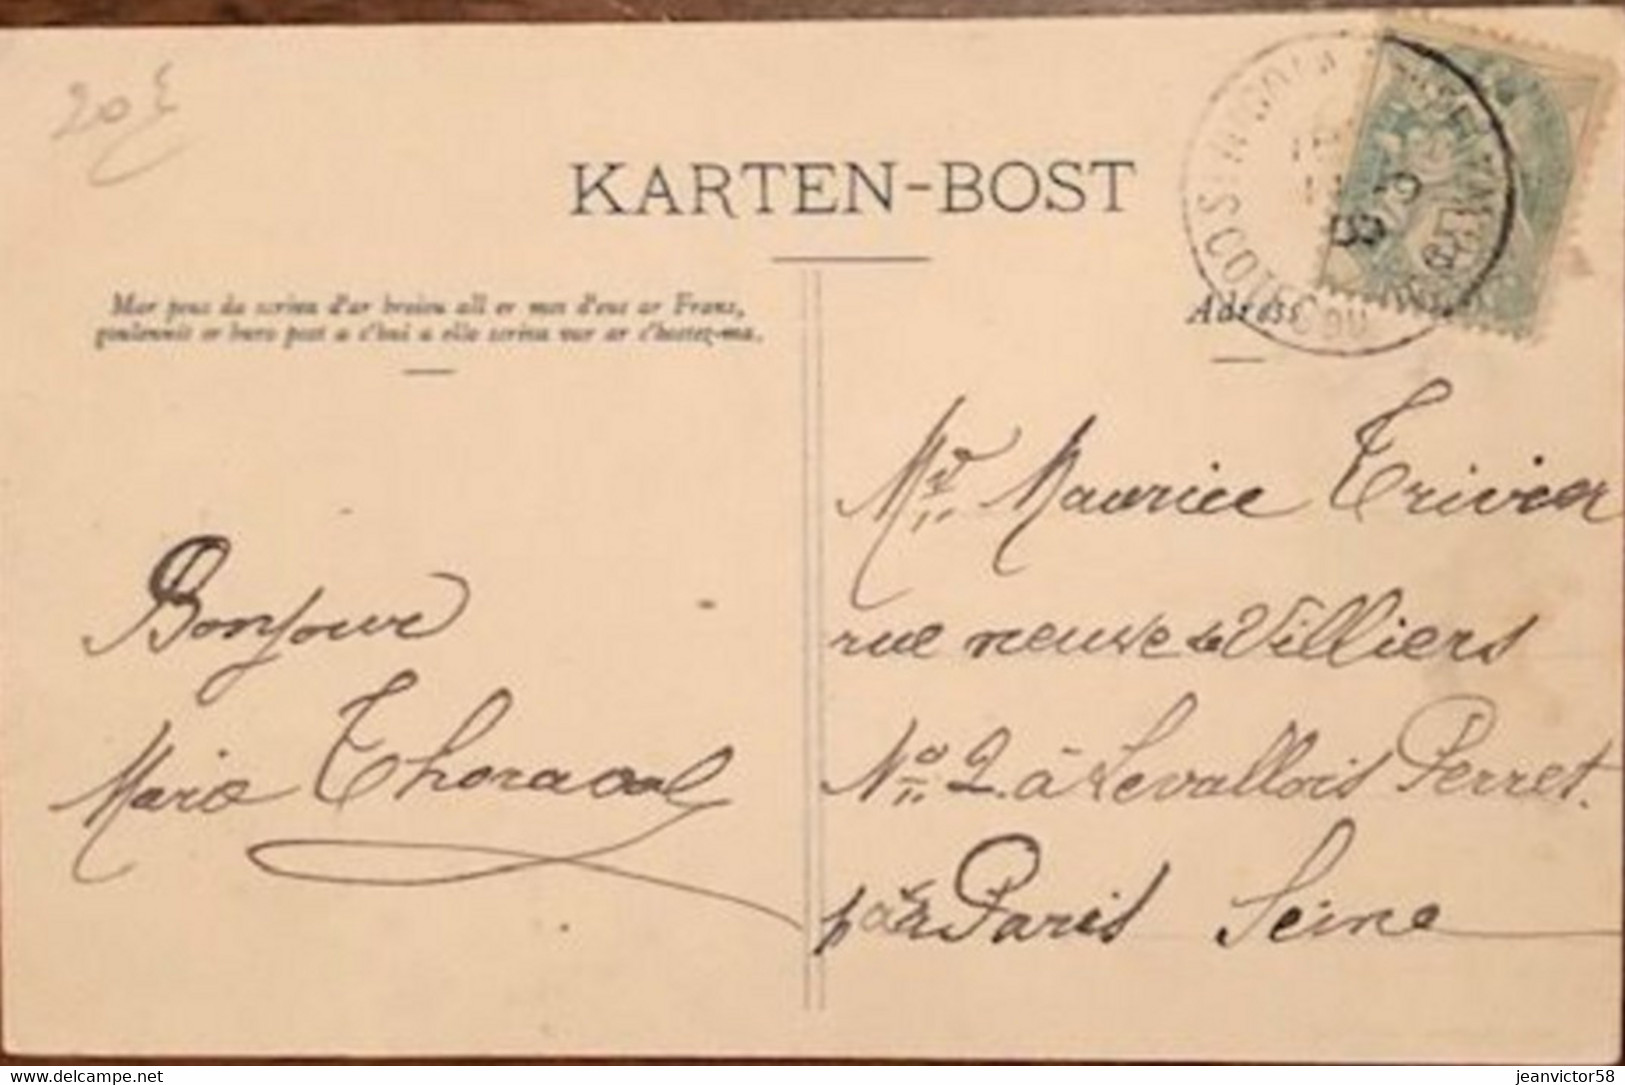 20 €
KARTEN-BOST
Mar peus da scriva d'ar broiou all er mes d'eus ar Frans,
goulennit er buro post a c'hui a ello scriva var ar c'hostez-ma.
Adress
COTES DU
Mr Maurice Trivier
rue neuve de Villiers
No 2 à Levallois Perret.
par Paris Seine
Bonjour
Marie Thoraval
jeanvictor58